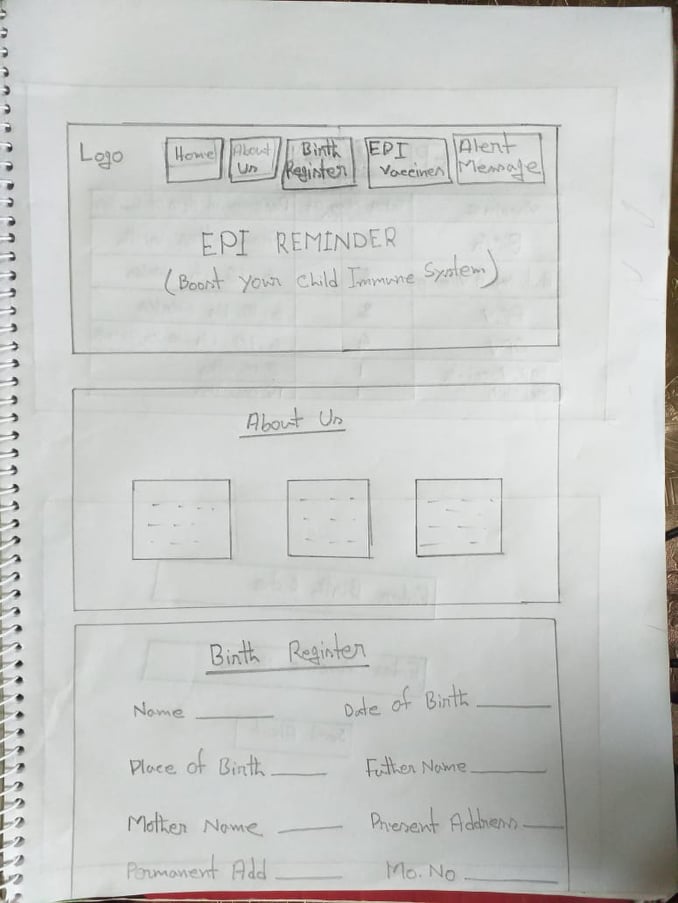 Logo
Home
About Us
Birth Register
EPI Vaccines
Alert Message
EPI REMINDER
(Boost your child Immune System)
About Us
Birth Register
Name
Date of Birth
Place of Birth
Father Name
Mother Name
Present Address
Permanent Add
Mo. No